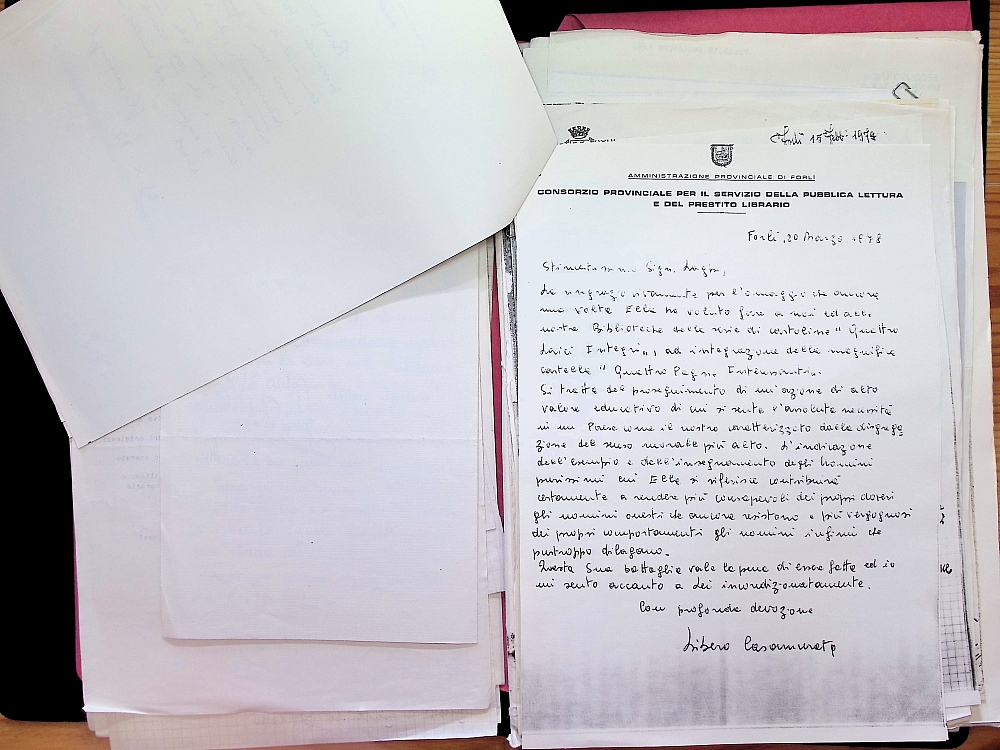 Forlì 15 Febb. 1974
AMMINISTRAZIONE PROVINCIALE DI FORLÌ
CONSORZIO PROVINCIALE PER IL SERVIZIO DELLA PUBBLICA LETTURA
E DEL PRESTITO LIBRARIO
Forlì, 20 Marzo 1978
Stimatissimo Sign.
La ringrazio vivamente per l'omaggio che ancora
una volta Ella ha voluto fare a noi ed alle
nostre Biblioteche della serie di cartoline "Quattro
Laici Integri", ad integrazione della magnifica
cartella "Quattro Pagine
Si tratta del proseguimento di un'azione di alto
valore educativo di cui si sente l'assoluta necessità
in un Paese come il nostro caratterizzato dalla disgrega
zione del senso morale più alto. L'indicazione
dell'esempio e dell'insegnamento degli uomini
purissimi cui Ella si riferisce contribuirà
certamente a rendere più consapevoli dei propri doveri
gli uomini onesti che ancora resistono e più vergognosi
dei propri comportamenti gli uomini infimi che
purtroppo dilagano.
Questa Sua battaglia vale la pena di essere fatta ed io
mi sento accanto a Lei incondizionatamente.
Con profonda devozione
Libero Casamurata